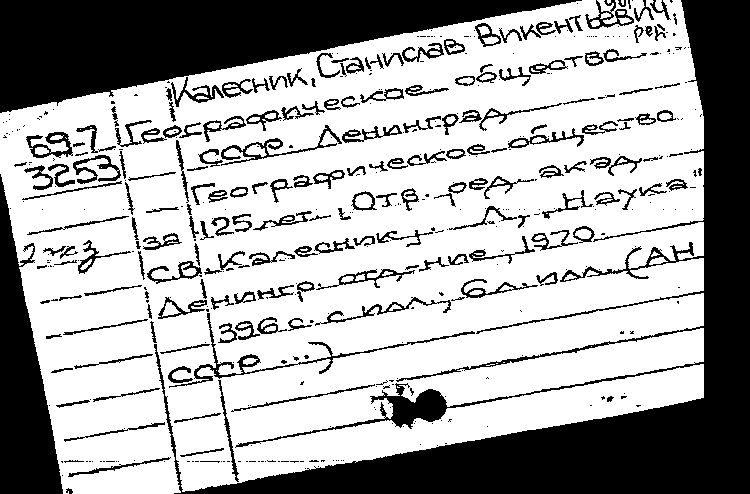 Калесник, Станислав Викентьевич,
ред.
Географическое общество
СССР. Ленинград
59-7
3253
Географическое общество
за 125 лет. [Отв. ред. акад.
2 экз
С.В. Калесник]. Л., „Наука"
Ленингр. отд-ние, 1970.
396 с. с илл.; 6 л. илл. (АН
СССР ...)